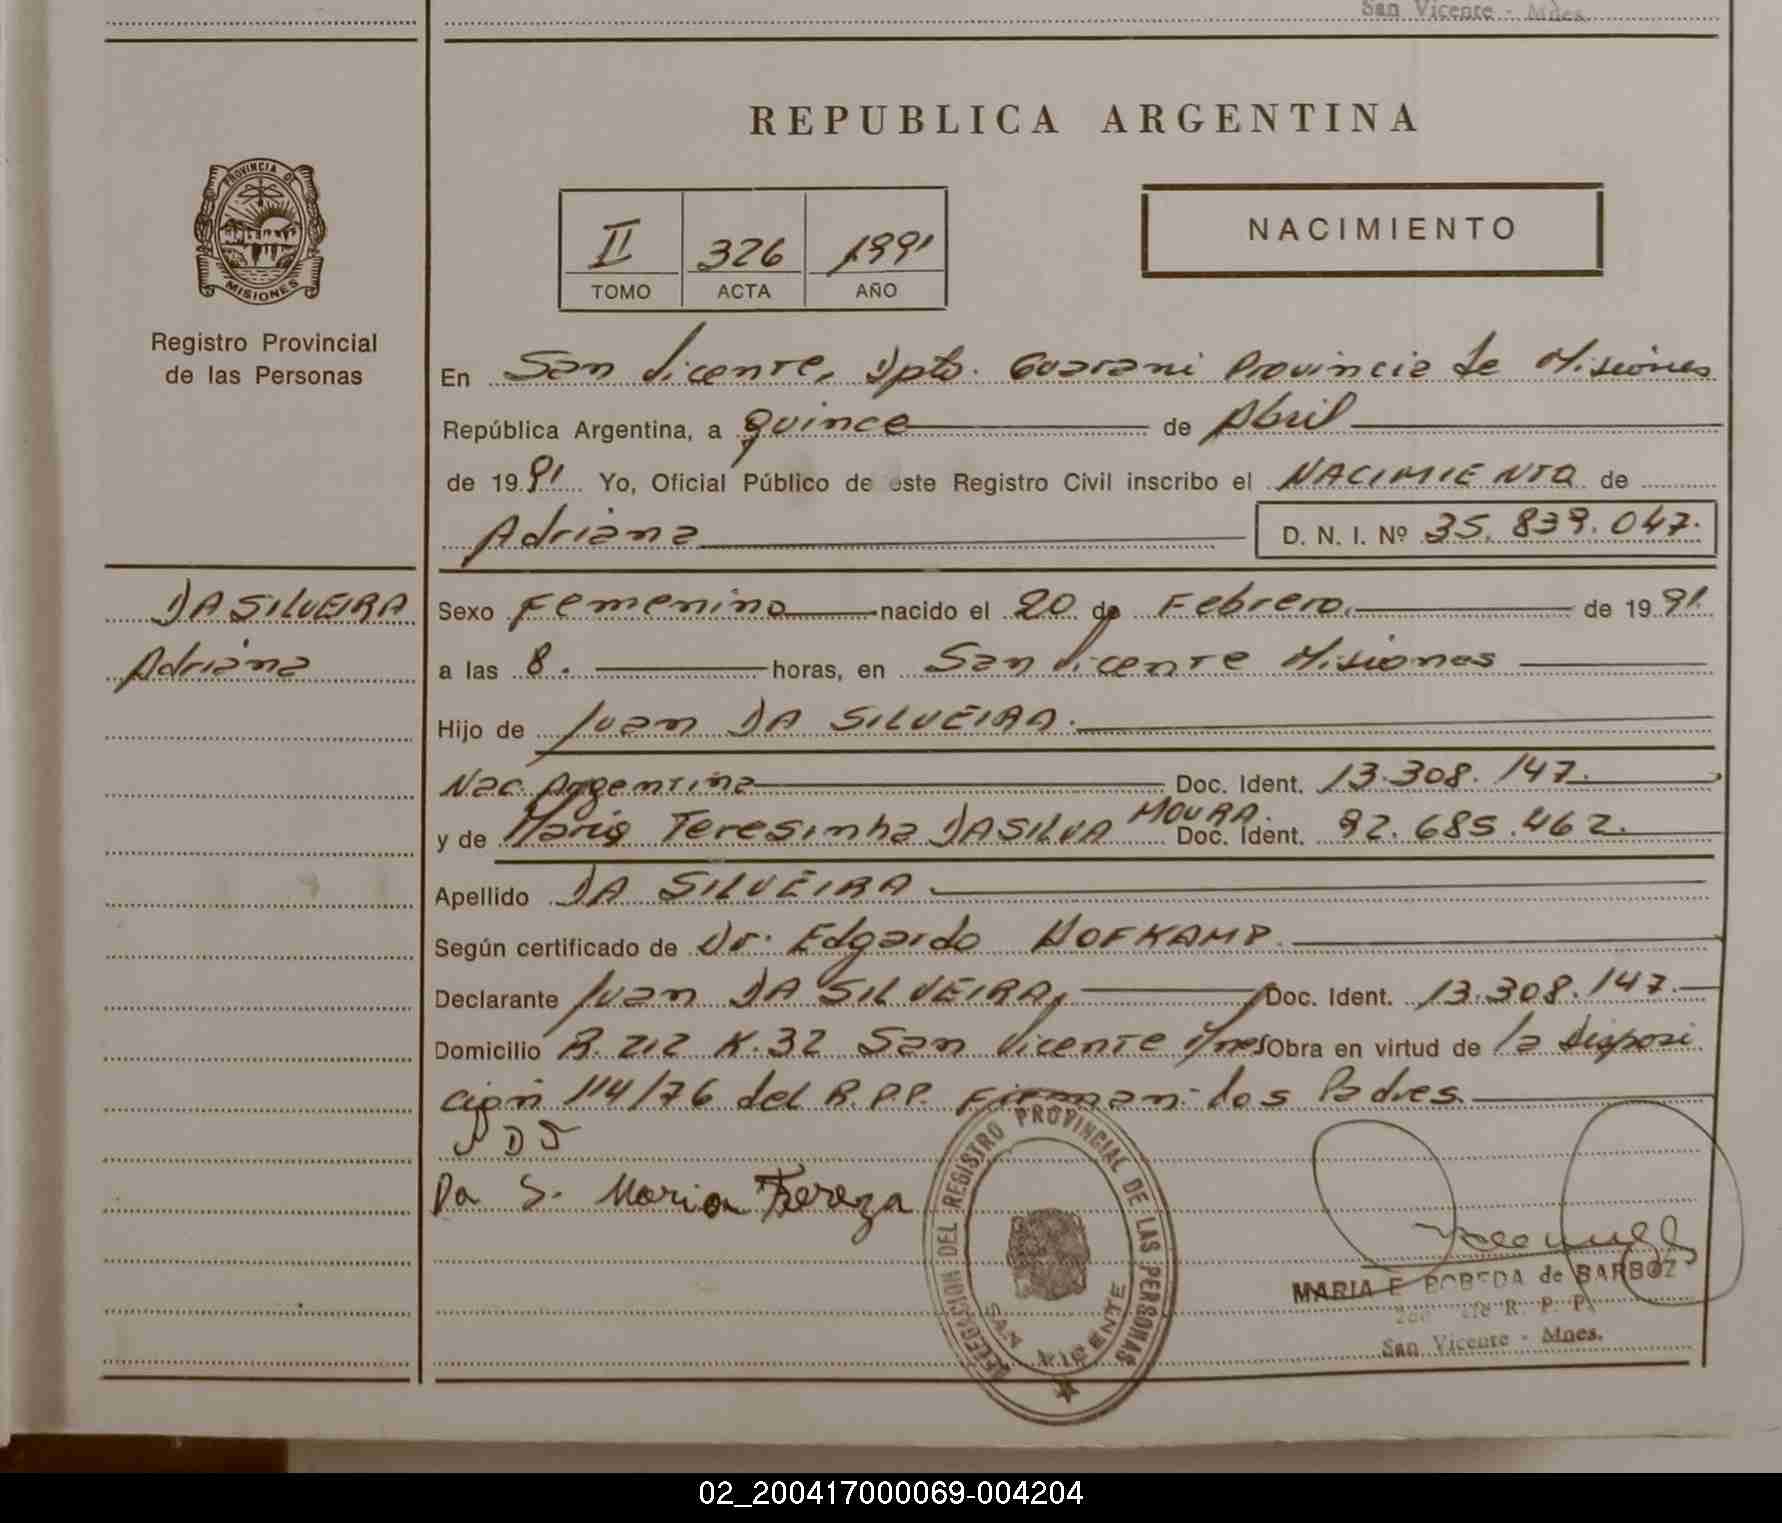 San Vicente - Mnes.
REPUBLICA ARGENTINA
PROVINCIA DE
MISIONES
Registro Provincial
de las Personas
II 326 1991
TOMO ACTA AÑO
NACIMIENTO
En San Vicente, Dpto. Guarani Provincia de Misiones
República Argentina, a quince de Abril
de 1991 Yo, Oficial Público de este Registro Civil inscribo el NACIMIENTO de
Adriana D. N. I. Nº 35.839.047.
DA SILVEIRA
Adriana
Sexo Femenino nacido el 20 de Febrero. de 1991.
a las 8. horas, en San Vicente Misiones
Hijo de Juan DA SILVEIRA.
Nac. Argentina Doc. Ident. 13.308.147.
y de Maria Teresinha DA SILVA MOURA. Doc. Ident. 92.685.462.
Apellido DA SILVEIRA
Según certificado de Dr. Edgardo HOFKAMP.
Declarante Juan DA SILVEIRA, Doc. Ident. 13.308.147.
Domicilio R. 212 K.32 San Vicente Mnes Obra en virtud de la disposi
ción 114/76 del R.P.P. Firman los Padres.
J D S
Da S. Maria Tereza
DELEGACION DEL REGISTRO PROVINCIAL DE LAS PERSONAS
SAN VICENTE
MARIA E. POBEDA de BARBOZ
R. P. P.
San Vicente - Mnes.
02_200417000069-004204